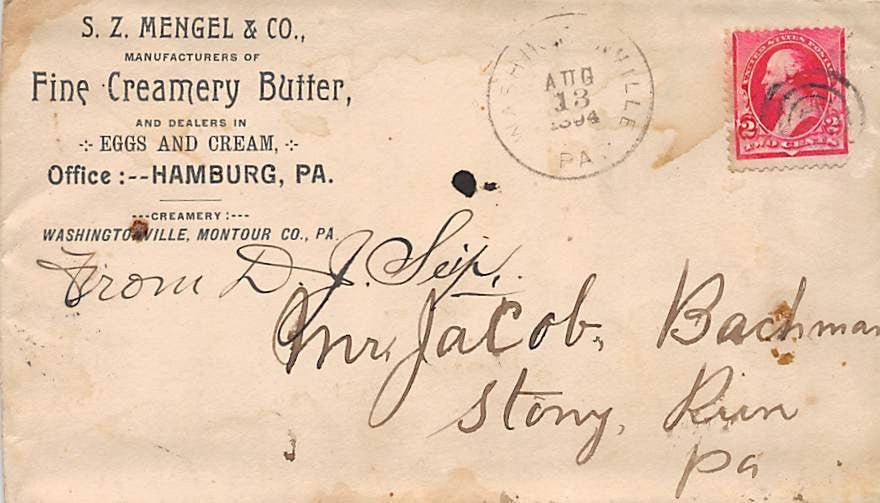 S. Z. MENGEL & CO.,
MANUFACTURERS OF
Fine Creamery Butter,
AND DEALERS IN
EGGS AND CREAM,
Office :--HAMBURG, PA.
---CREAMERY :---
WASHINGTONVILLE, MONTOUR CO., PA.
WASHINGTONVILLE
AUG
13
1894
PA.
UNITED STATES POSTAGE
2 2
TWO CENTS
From D. J. Seip,
Mr. Jacob, Bachman
Stony, Run
Pa